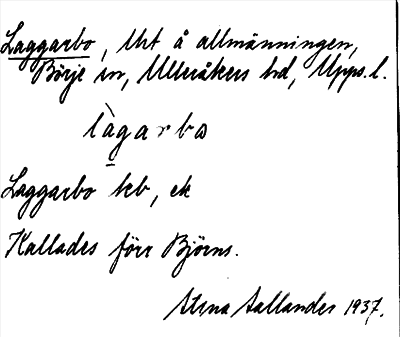 Laggarbo, Urt å allmänningen,
Börje sn, Ulleråkers hd, Upps. l.
làgarbo
Laggarbo kb, ek
Kallades förr Björns.
Stina Sallander 1937.